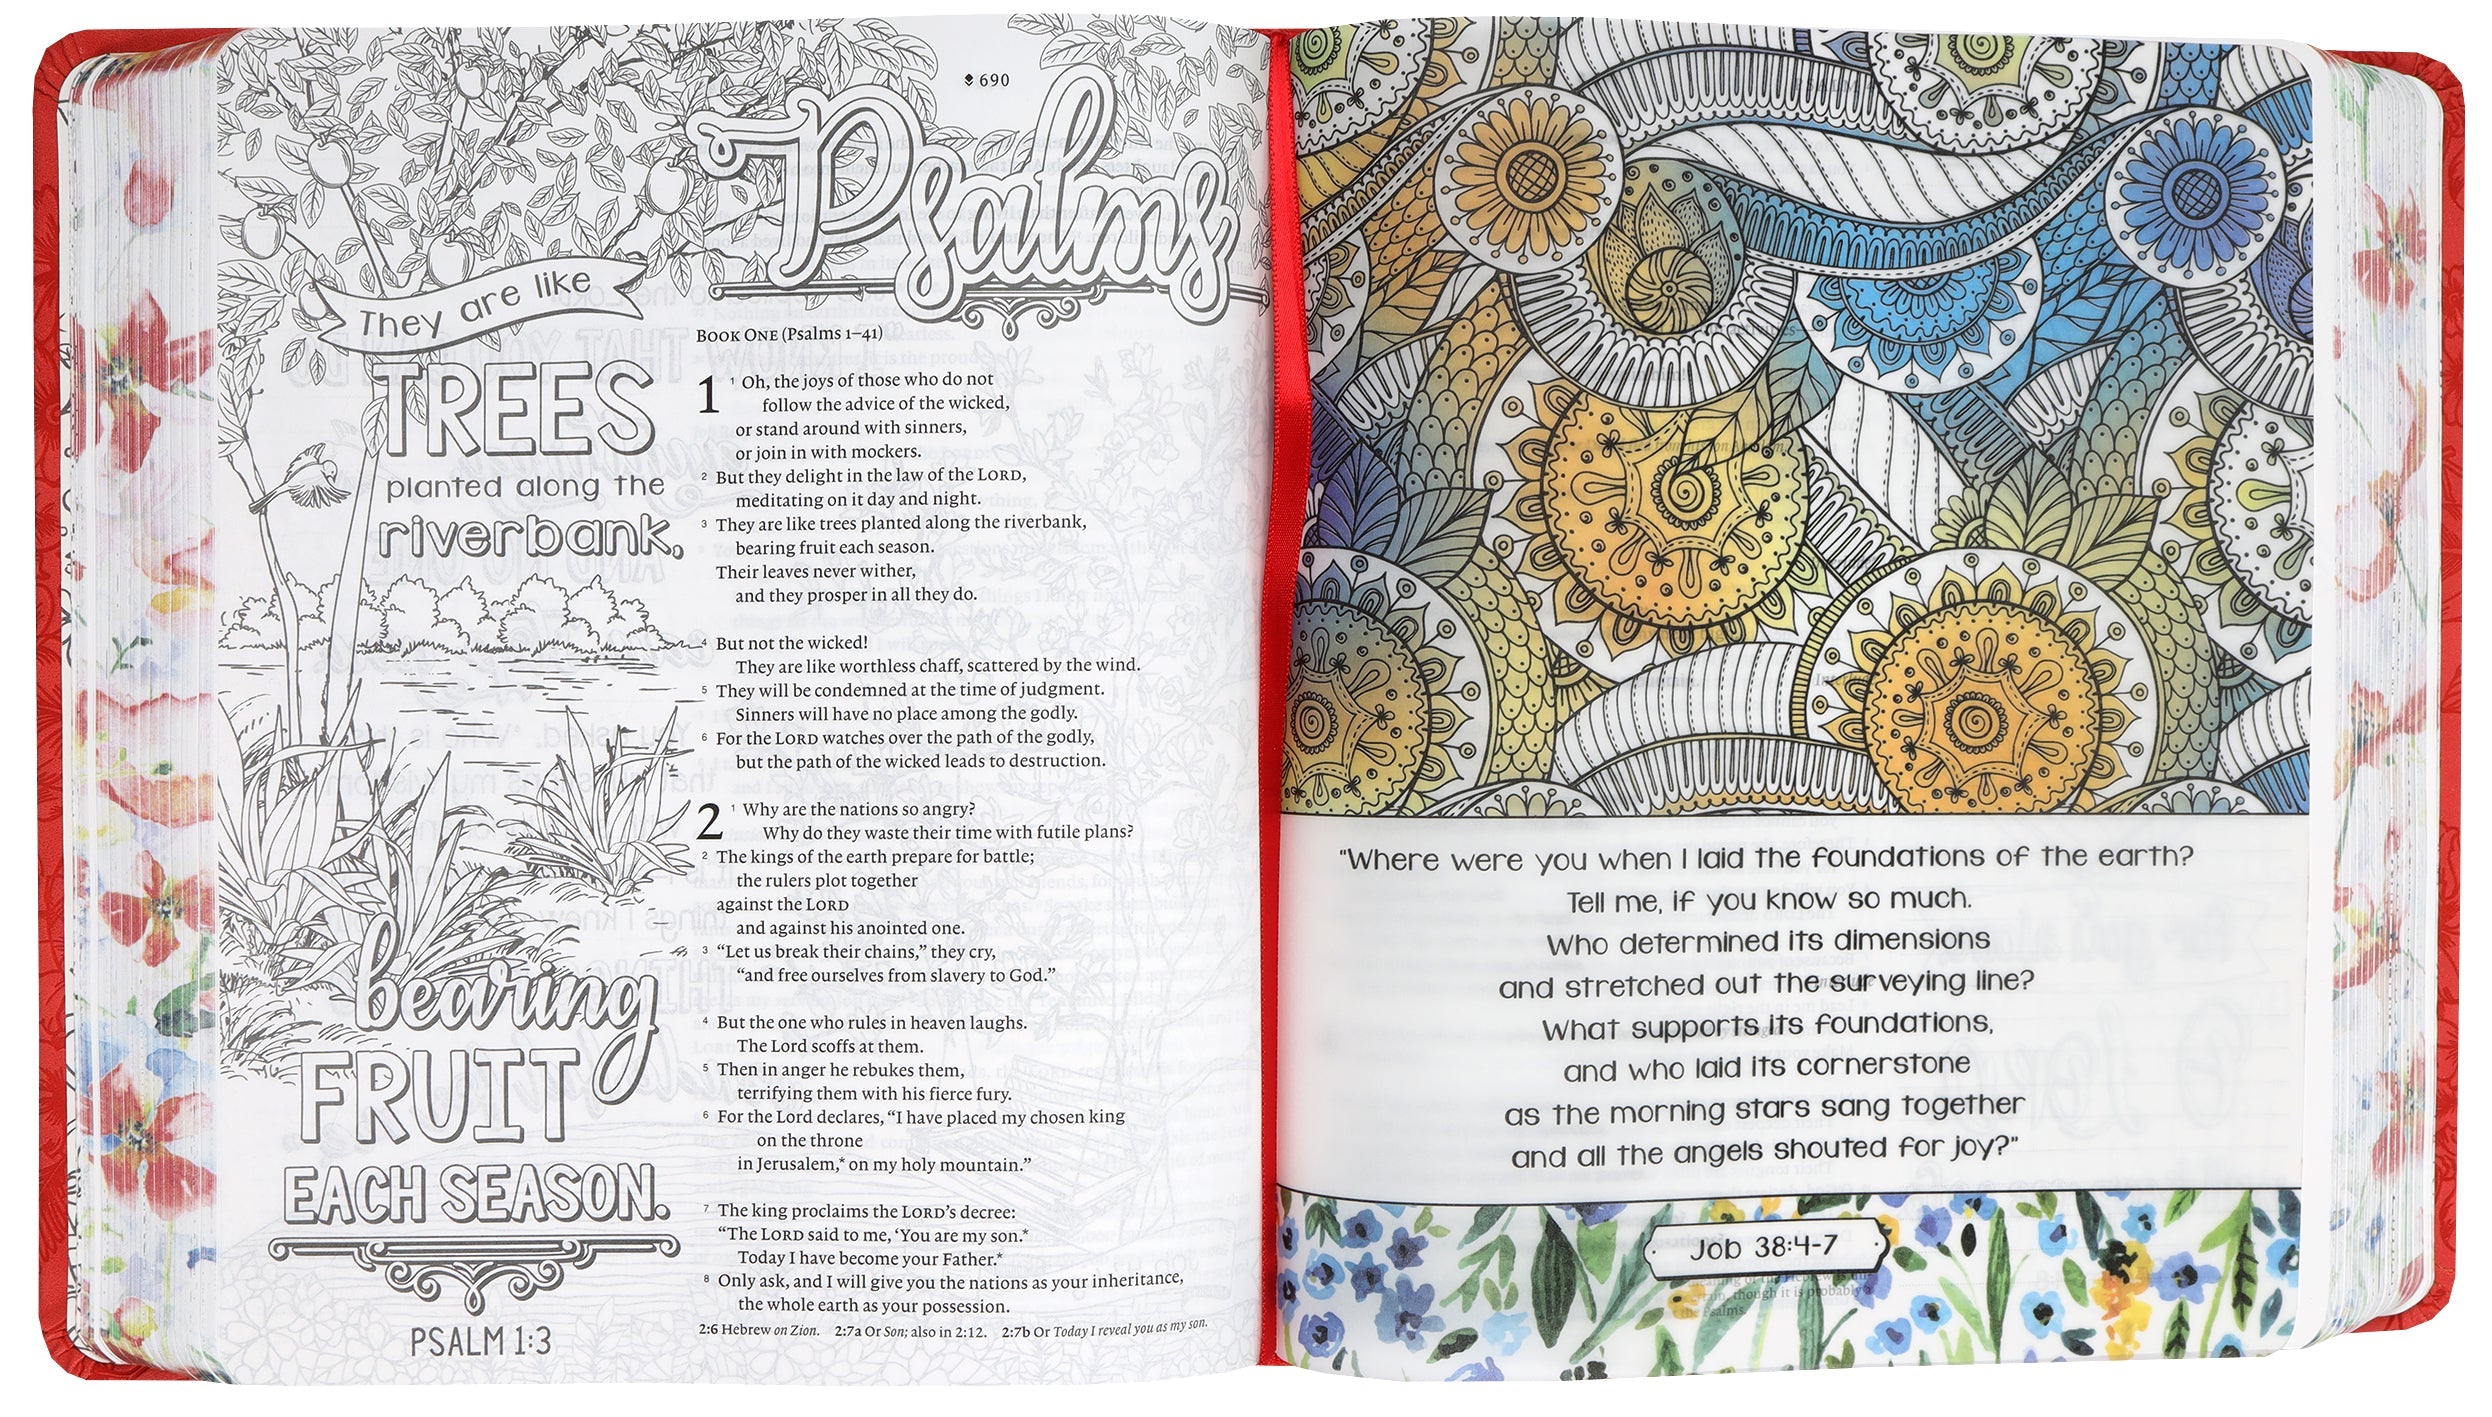 690
Psalms
They are like
TREES
planted along the
riverbank,
bearing
FRUIT
EACH SEASON.
PSALM 1:3
BOOK ONE (Psalms 1–41)
1 1 Oh, the joys of those who do not
follow the advice of the wicked,
or stand around with sinners,
or join in with mockers.
2 But they delight in the law of the LORD,
meditating on it day and night.
3 They are like trees planted along the riverbank,
bearing fruit each season.
Their leaves never wither,
and they prosper in all they do.
4 But not the wicked!
They are like worthless chaff, scattered by the wind.
5 They will be condemned at the time of judgment.
Sinners will have no place among the godly.
6 For the LORD watches over the path of the godly,
but the path of the wicked leads to destruction.
2 1 Why are the nations so angry?
Why do they waste their time with futile plans?
2 The kings of the earth prepare for battle;
the rulers plot together
against the LORD
and against his anointed one.
3 “Let us break their chains,” they cry,
“and free ourselves from slavery to God.”
4 But the one who rules in heaven laughs.
The Lord scoffs at them.
5 Then in anger he rebukes them,
terrifying them with his fierce fury.
6 For the Lord declares, “I have placed my chosen king
on the throne
in Jerusalem,* on my holy mountain.”
7 The king proclaims the LORD’s decree:
“The LORD said to me, ‘You are my son.*
Today I have become your Father.*
8 Only ask, and I will give you the nations as your inheritance,
the whole earth as your possession.
2:6 Hebrew on Zion. 2:7a Or Son; also in 2:12. 2:7b Or Today I reveal you as my son.
“Where were you when I laid the foundations of the earth?
Tell me, if you know so much.
Who determined its dimensions
and stretched out the surveying line?
What supports its foundations,
and who laid its cornerstone
as the morning stars sang together
and all the angels shouted for joy?”
Job 38:4-7